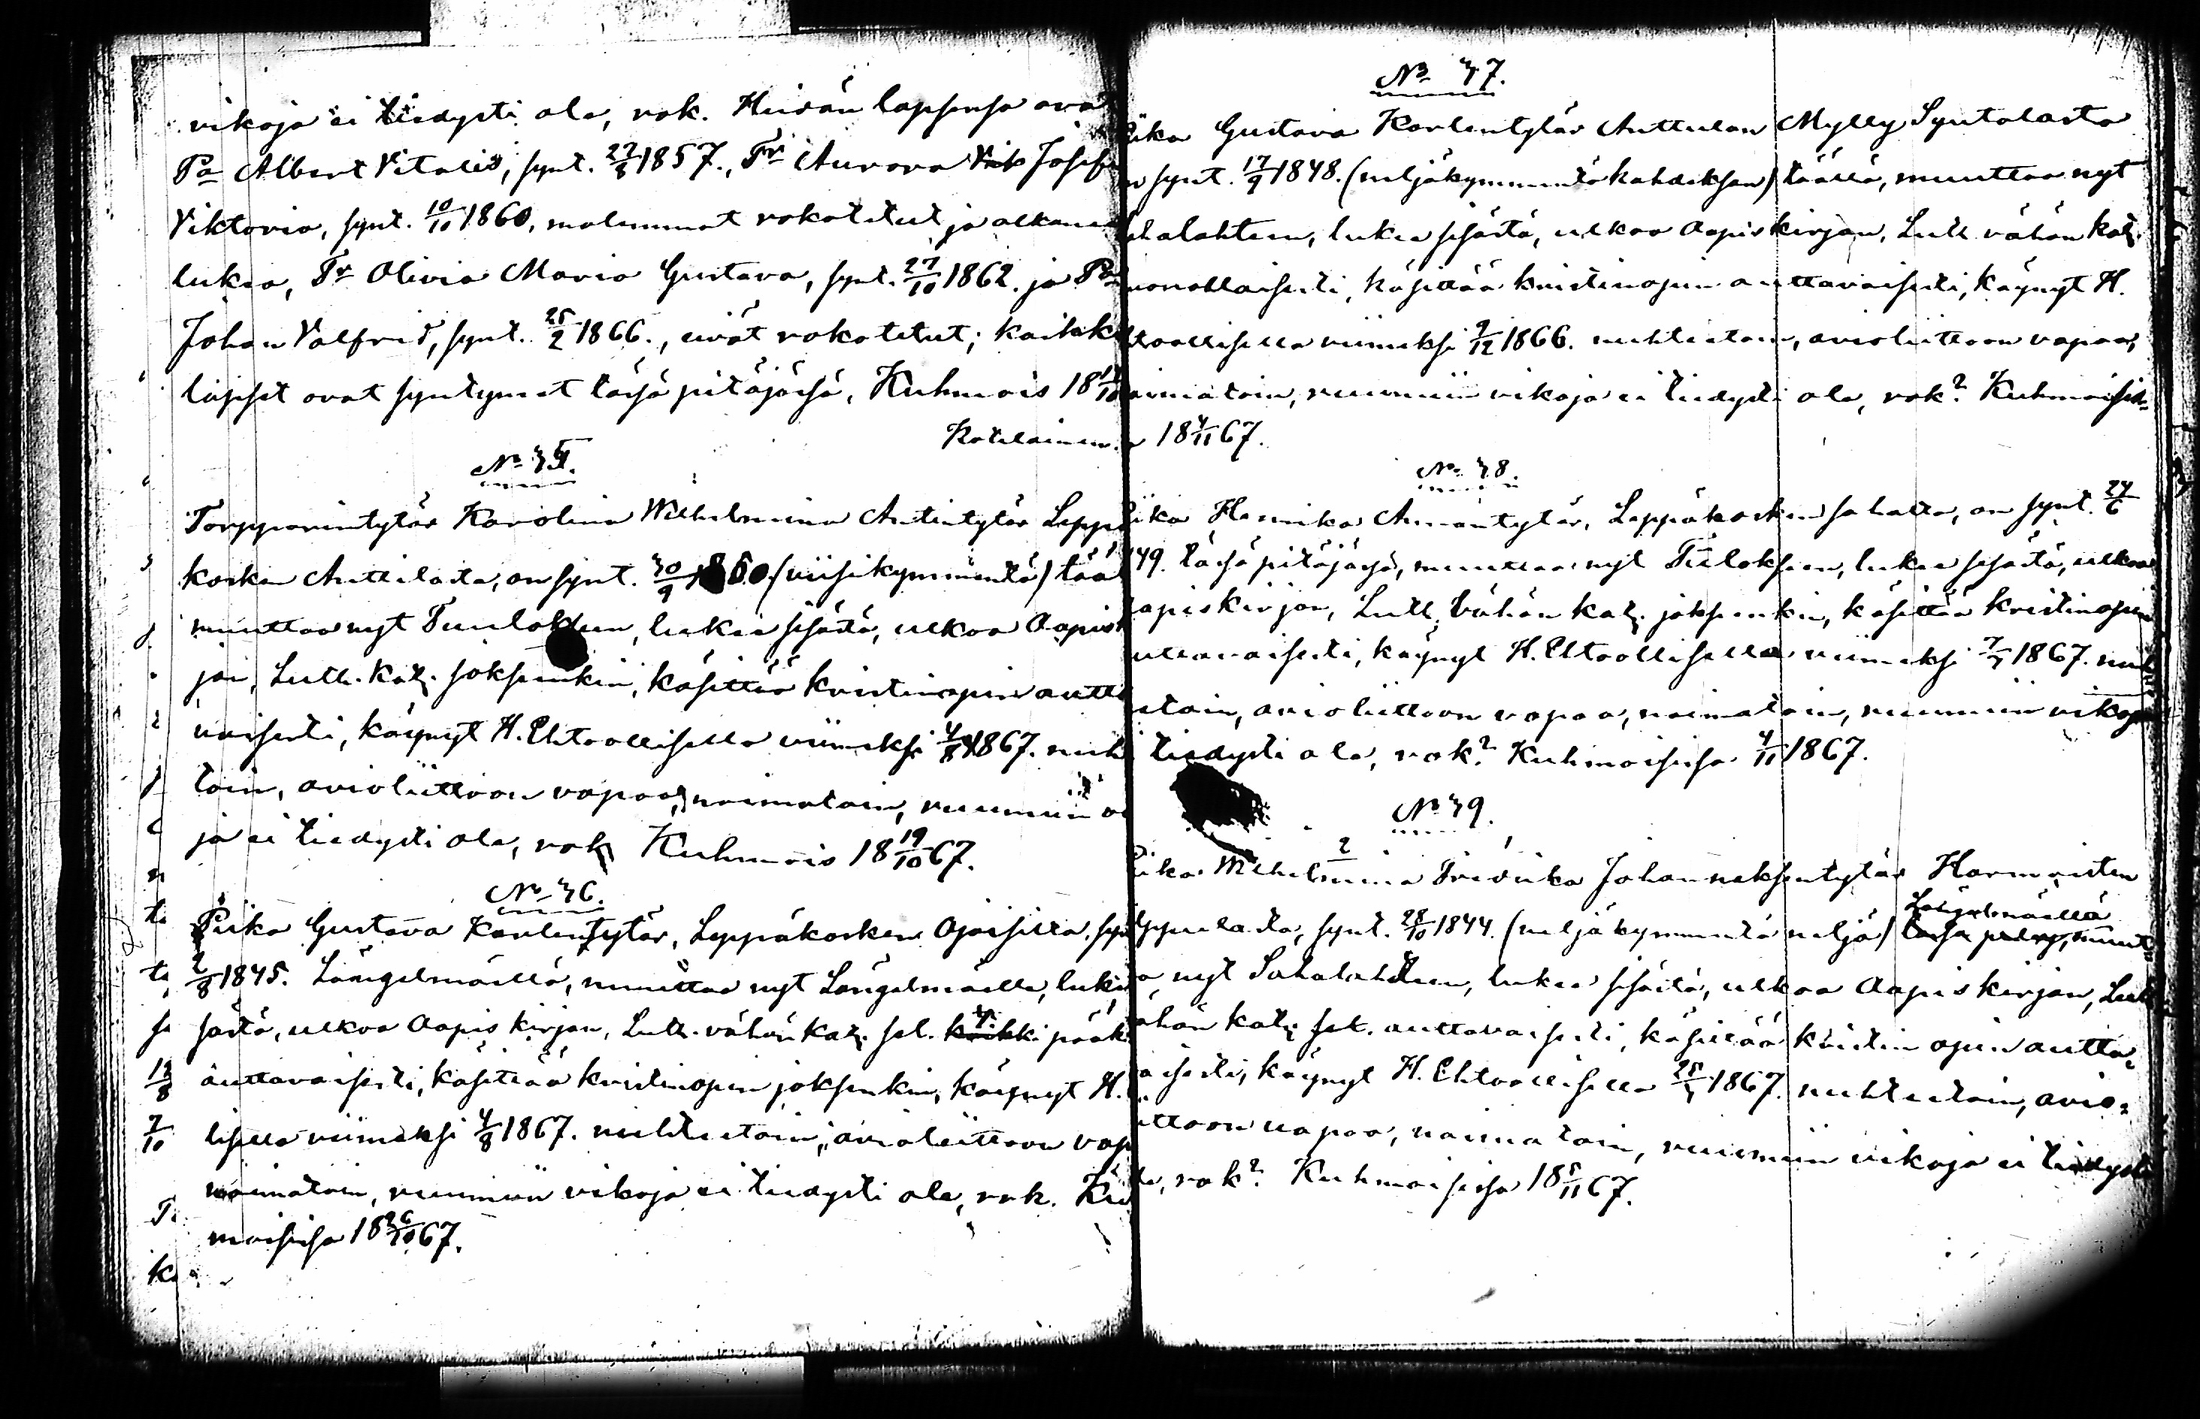 vikoja ei tiedysti ole, rok. Heidän lapsensa ovat
Pa Albert Vitalis, synt. 27/3 1857., Tr Aurora Josefi
Viktoria, synt. 10/10 1860, molemmat rokotetut ja alkane
lukea, Tr Olivia Maria Gustava, synt. 27/10 1862. ja Pa
Johan Valfrid, synt. 25/2 1866., eivät rokotetut; kaikk
lapset ovat syntynet täsä pitäjäsä, Kuhmois 18
Kotilainen.
No 45.
Torpparintytär Karolina Wilhelmina Antintytär Leppä
kosken Anttilasta, on synt. 30/9 1850 (viisikymmentä) tää
muuttaa nyt Tuuloksen, lukee sisästä, ulkoa Aapisk
jan, Luth. kat. joksenkin, käsittää kristinopin autta
vaisesti, käynyt H. Ehtoollisella viimeksi 4/8 1867. nuh
toin, avioliittoon vapaa, naimatoin, ruumiin vi
ja ei tiedysti ole, rok. Kuhmois 18 19/10 67.
No 46.
Piika Gustava Kaarlentytär, Leppäkosken Ojaisilta, syn
2/8 1845. Längelmäellä, muuttaa nyt Längelmäelle, luke
sästä, ulkoa Aapiskirjan, Luth. vähän kat. sel. kaikki pääk
auttavaisesti, käsittää kristinopin joksenkin, käynyt H.
lisella viimeksi 4/8 1867. nuhteetoin, avioliittoon vap
naimatoin, ruumiin vikoja ei tiedysti ole, rok. Kuh
moisisa 18 26/10 67.
No 47.
iika Gustava Kaarlentytär Anttulan Mylly Syntalasta
n synt. 17/9 1848. (neljäkymmentä kahdeksan) täällä, muuttaa nyt
ahalahteen, lukee sisästä, ulkoa Aapiskirjan, Luth. vähän kat.
nonollaisesti, käsittää kristinopin auttavaisesti, käynyt H.
htoollisella viimeksi 9/12 1866. nuhteetoin, avioliittoon vapaa,
aimatoin, ruumiin vikoja ei tiedysti ole, rok? Kuhmoisis-
a 18 4/11 67.
No 48.
iika Hennika Amantytär, Leppäkosken sahalta, on synt. 24/6
49. täsä pitäjäsä, muuttaa nyt Tuuloksen, lukee sisästä, ulkoa
apiskirjan, Luth. vähän kat. joksenkin, käsittää kristinopin
uttavaisesti, käynyt H. Ehtoollisella viimeksi 7/7 1867. nuh
etoin, avioliittoon vapaa, naimatoin, ruumiin vikoja
i tiedysti ole, rok? Kuhmoisisa 4/11 1867.
No 49.
iika Wilhelmina Fredrika Johanneksentytär Harmoisten
ppulasta, synt. 28/10 1844. (neljäkymmentä neljä) Längelmäellä muut
a nyt Sahalahteen, lukee sisästä, ulkoa Aapiskirjan, Luth
ähän kat. sel. auttavaisesti, käsittää kristin opin autta-
aisesti, käynyt H. Ehtoollisella 1867. nuhteetoin, avio-
ittoon vapaa, naimatoin, ruumiin vikoja ei tiedysti
le, rok? Kuhmoisisa 18 5/11 67.